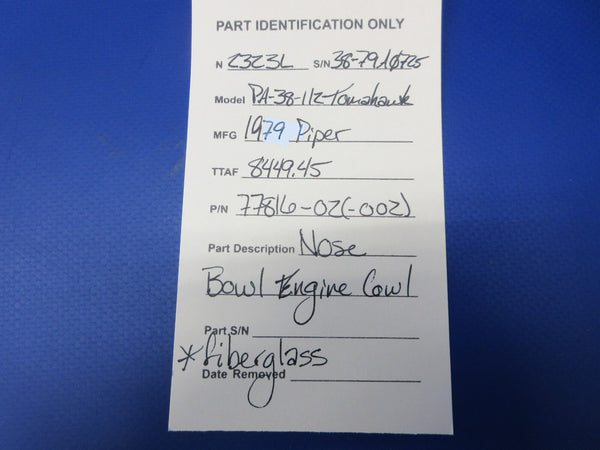 PART IDENTIFICATION ONLY
N 2323L S/N 38-79A0725
Model PA-38-112-Tomahawk
MFG 1979 Piper
TTAF 8449.45
P/N 77816-02(-002)
Part Description Nose
Bowl Engine Cowl
Part S/N
*fiberglass
Date Removed